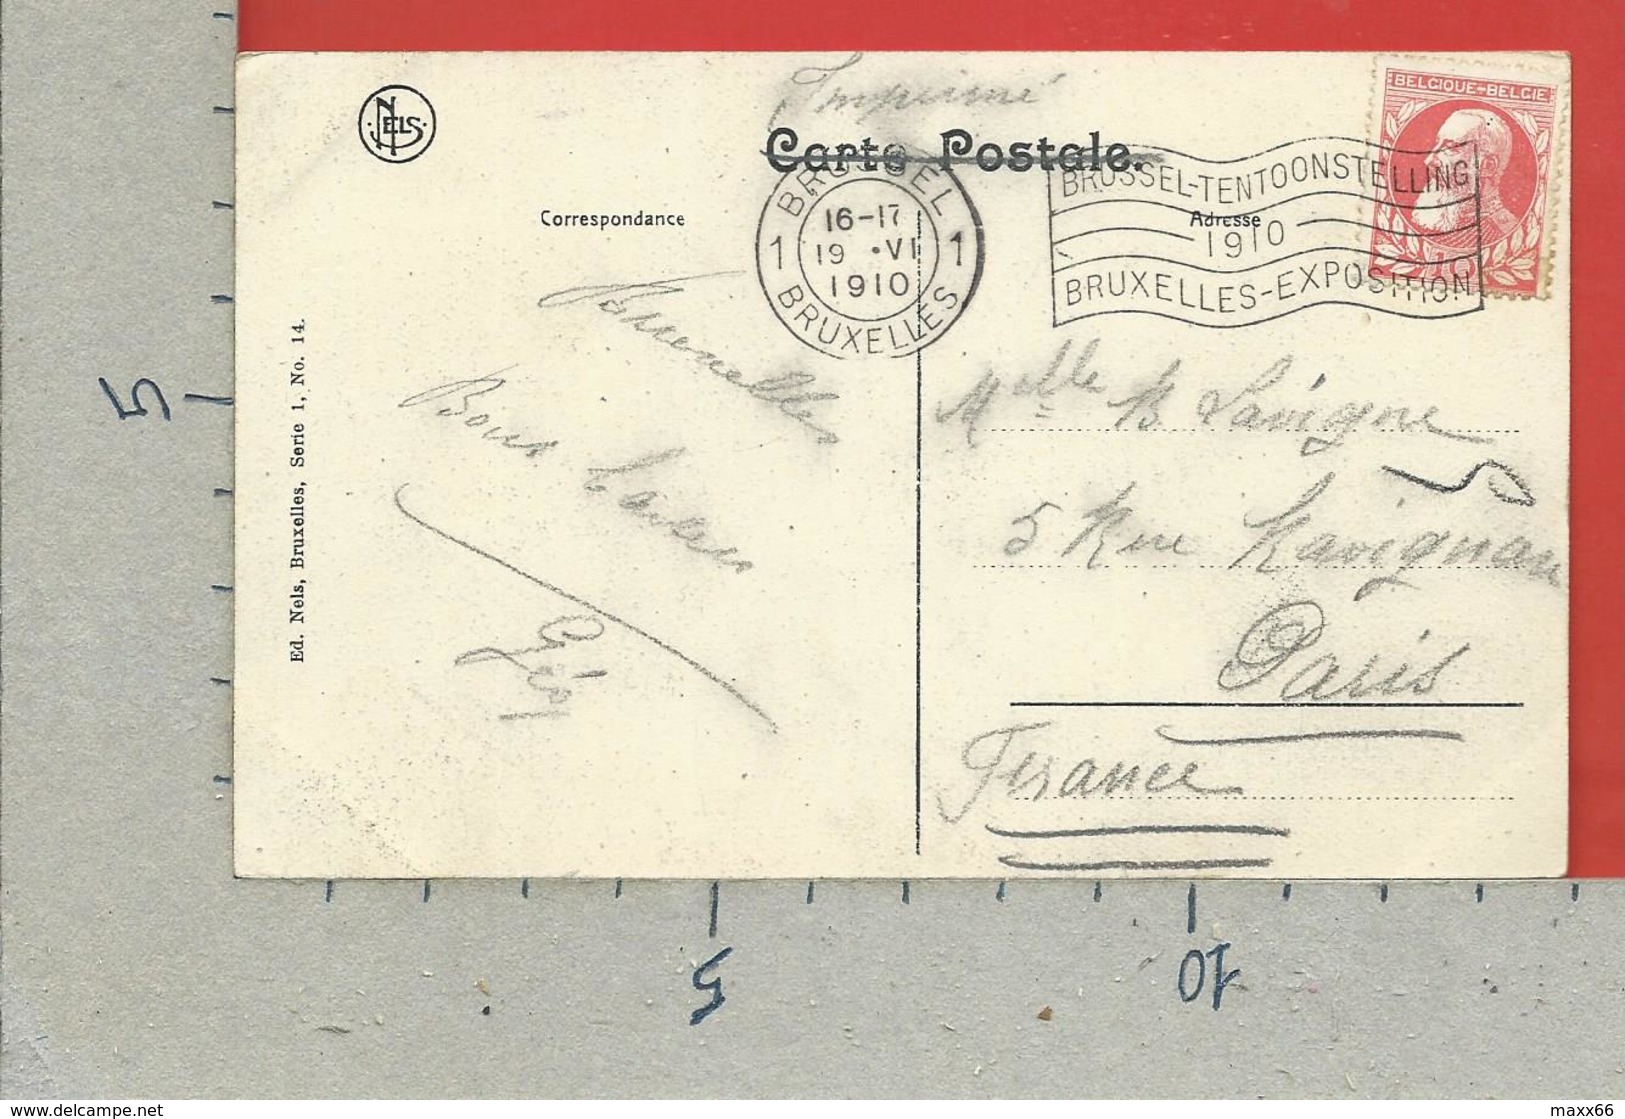 Imprimé
Carte Postale.
NELS
Correspondance
Adresse
BRUSSEL
1 16-17 1
19 •VI
1910
BRUXELLES
BRUSSEL-TENTOONSTELLING
1910
BRUXELLES-EXPOSITION
BELGIQUE-BELGIE
10
Bruxelles
Bons baisers
Géo
Melle B Lavigne
5 Rue Ravignan
Paris
France
Ed. Nels, Bruxelles, Serie 1, No. 14.
5
5
10
www.delcampe.net
maxx66